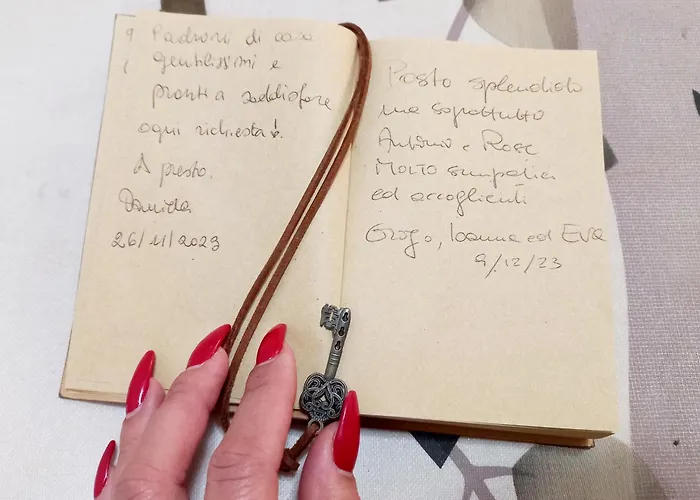 Padroni di casa
gentilissimi e
pronti a soddisfare
ogni richiesta!.
A presto.
Daniela
26/11/2023
Posto splendido
ma soprattutto
Antonio e Rose
Molto simpatici
ed accoglienti
Ioanna ed Eva
9/12/23